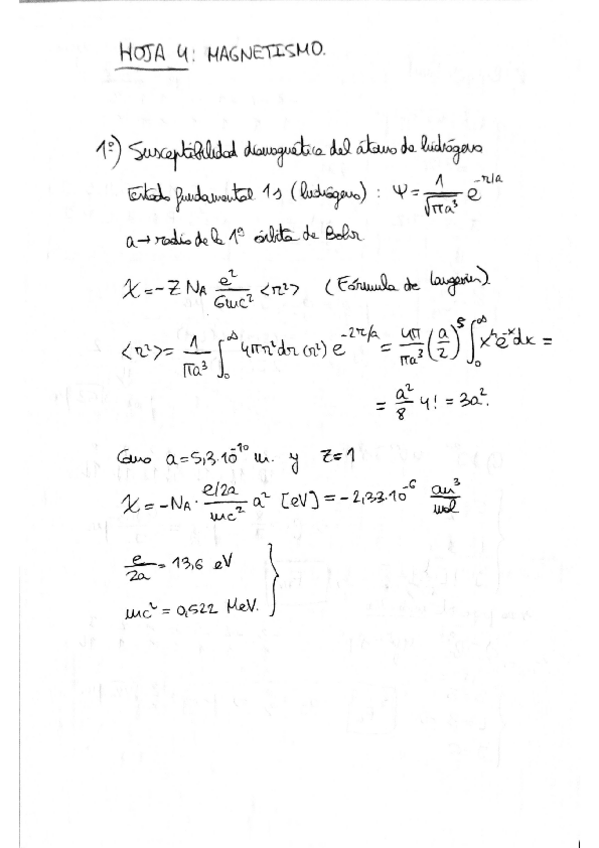 HOJA 4: MAGNETISMO.
1º) Susceptibilidad diamagnética del átomo de hidrógeno
Estado fundamental 1s (hidrógeno): Ψ = 1/√(πa³) e^(-r/a)
a → radio de la 1ª órbita de Bohr
χ = -Z N_A e²/(6mc²) <r²> (Fórmula de Langevin)
<r²> = 1/(πa³) ∫₀^∞ 4πr²dr (r²) e^(-2r/a) = 4π/(πa³) (a/2)⁵ ∫₀^∞ x⁴e^(-x)dx =
= a²/8 4! = 3a².
Como a = 5,3·10^(-10) m. y Z=1
χ = -N_A · (e/2a)/(mc²) a² [eV] = -2,33·10^(-6) cm³/mol
e/2a = 13,6 eV
mc² = 0,522 MeV.